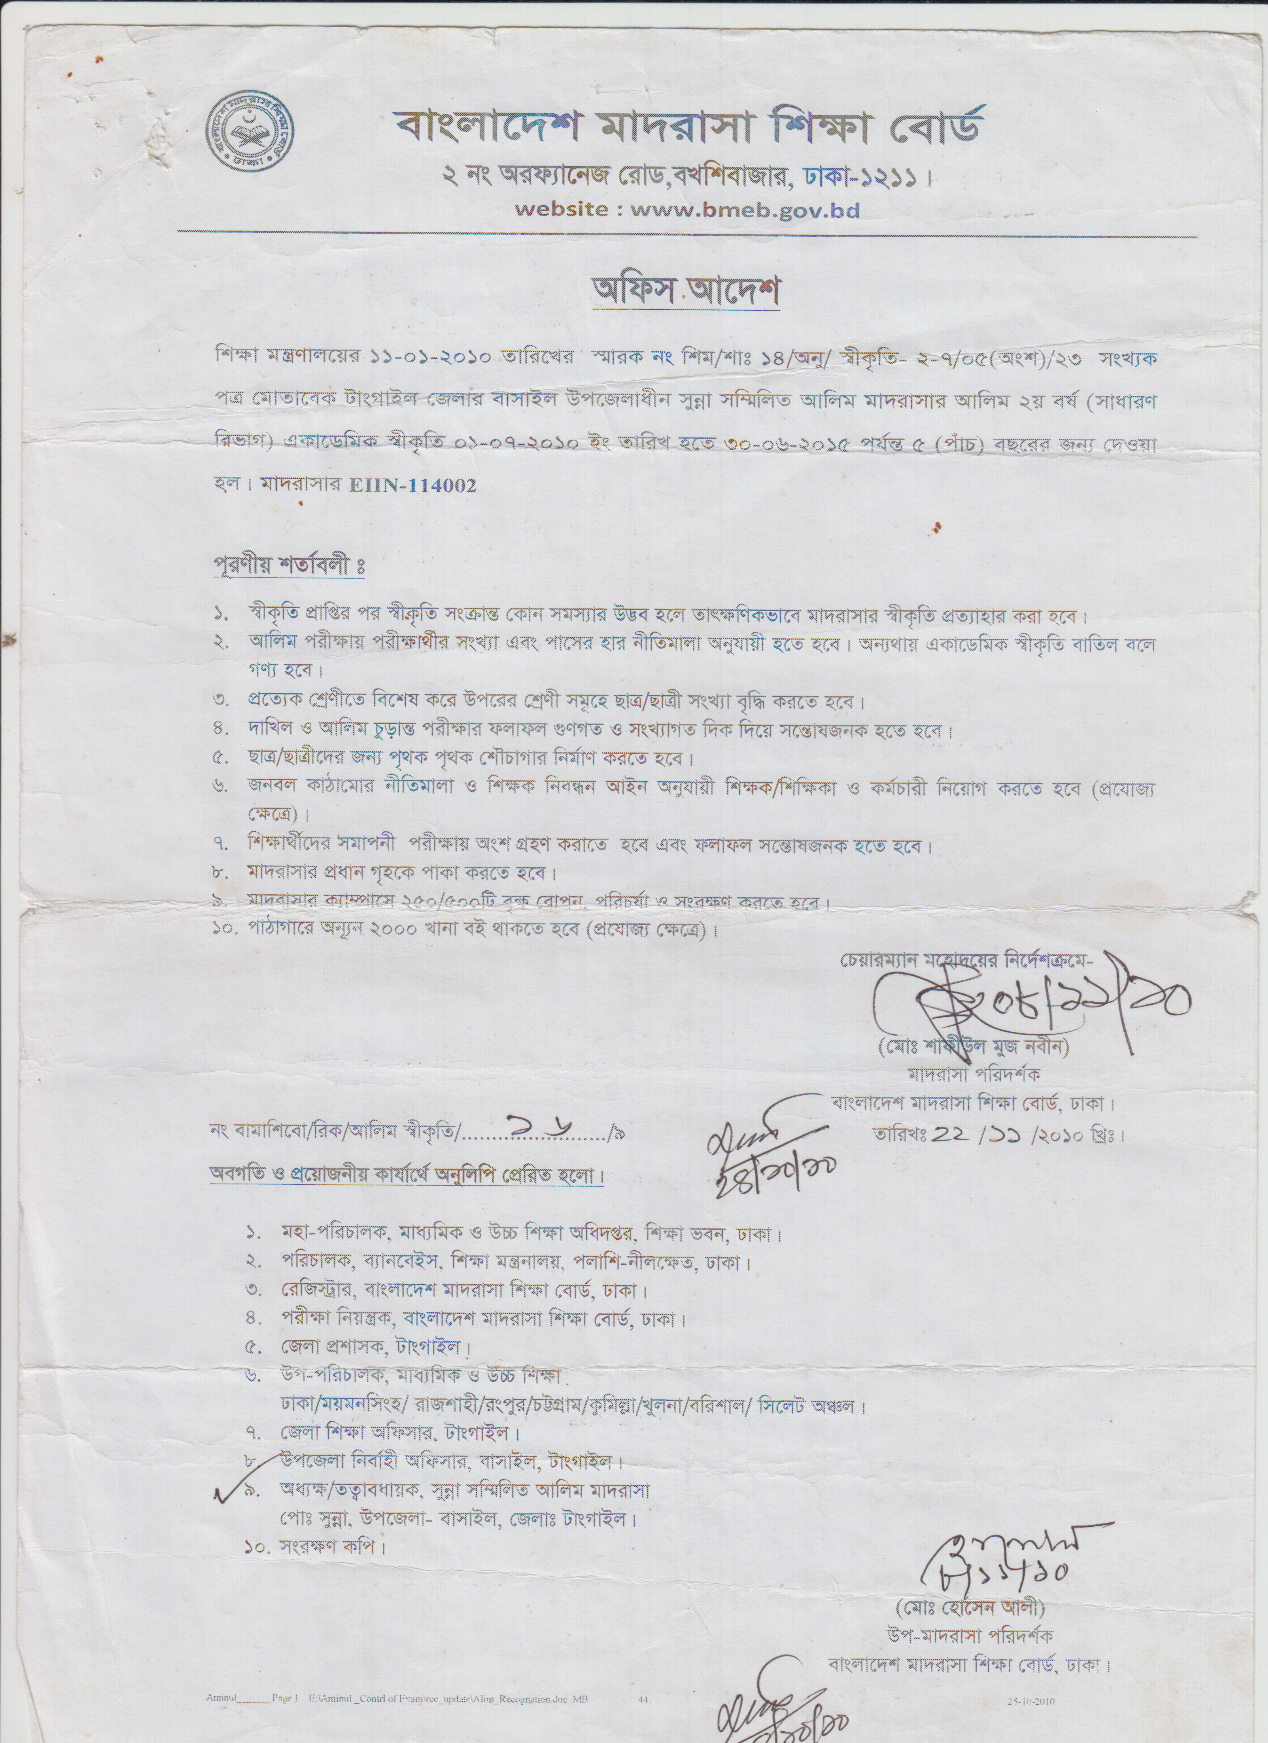 বাংলাদেশ মাদরাসা শিক্ষা বোর্ড
২ নং অরফ্যানেজ রোড,বখশিবাজার, ঢাকা-১২১১।
website : www.bmeb.gov.bd
অফিস আদেশ
শিক্ষা মন্ত্রণালয়ের ১১-০১-২০১০ তারিখের স্মারক নং শিম/শাঃ ১৪/অনু/ স্বীকৃতি- ২-৭/০৫(অংশ)/২৩ সংখ্যক
পত্র মোতাবেক টাংগাইল জেলার বাসাইল উপজেলাধীন সুন্না সম্মিলিত আলিম মাদরাসার আলিম ২য় বর্ষ (সাধারণ
বিভাগ) একাডেমিক স্বীকৃতি ০১-০৭-২০১০ ইং তারিখ হতে ৩০-০৬-২০১৫ পর্যন্ত ৫ (পাঁচ) বছরের জন্য দেওয়া
হল। মাদরাসার EIIN-114002
পূরণীয় শর্তাবলী ঃ
১. স্বীকৃতি প্রাপ্তির পর স্বীকৃতি সংক্রান্ত কোন সমস্যার উদ্ভব হলে তাৎক্ষণিকভাবে মাদরাসার স্বীকৃতি প্রত্যাহার করা হবে।
২. আলিম পরীক্ষায় পরীক্ষার্থীর সংখ্যা এবং পাসের হার নীতিমালা অনুযায়ী হতে হবে। অন্যথায় একাডেমিক স্বীকৃতি বাতিল বলে
গণ্য হবে।
৩. প্রত্যেক শ্রেণীতে বিশেষ করে উপরের শ্রেণী সমূহে ছাত্র/ছাত্রী সংখ্যা বৃদ্ধি করতে হবে।
৪. দাখিল ও আলিম চূড়ান্ত পরীক্ষার ফলাফল গুণগত ও সংখ্যাগত দিক দিয়ে সন্তোষজনক হতে হবে।
৫. ছাত্র/ছাত্রীদের জন্য পৃথক পৃথক শৌচাগার নির্মাণ করতে হবে।
৬. জনবল কাঠামোর নীতিমালা ও শিক্ষক নিবন্ধন আইন অনুযায়ী শিক্ষক/শিক্ষিকা ও কর্মচারী নিয়োগ করতে হবে (প্রযোজ্য
ক্ষেত্রে)।
৭. শিক্ষার্থীদের সমাপনী পরীক্ষায় অংশ গ্রহণ করাতে হবে এবং ফলাফল সন্তোষজনক হতে হবে।
৮. মাদরাসার প্রধান গৃহকে পাকা করতে হবে।
৯. মাদরাসার ক্যাম্পাসে ২৫০/৫০০টি বৃক্ষ রোপন, পরিচর্যা ও সংরক্ষণ করতে হবে।
১০. পাঠাগারে অন্যূন ২০০০ খানা বই থাকতে হবে (প্রযোজ্য ক্ষেত্রে)।
চেয়ারম্যান মহোদয়ের নির্দেশক্রমে-
০৮/১১/১০
(মোঃ শাফীউল মুজ নবীন)
মাদরাসা পরিদর্শক
বাংলাদেশ মাদরাসা শিক্ষা বোর্ড, ঢাকা।
নং বামাশিবো/রিক/আলিম স্বীকৃতি/........১৬........./৯
তারিখঃ 22 /১১ /২০১০ খ্রিঃ।
২৪/১০/১০
অবগতি ও প্রয়োজনীয় কার্যার্থে অনুলিপি প্রেরিত হলো।
১. মহা-পরিচালক, মাধ্যমিক ও উচ্চ শিক্ষা অধিদপ্তর, শিক্ষা ভবন, ঢাকা।
২. পরিচালক, ব্যানবেইস, শিক্ষা মন্ত্রনালয়, পলাশি-নীলক্ষেত, ঢাকা।
৩. রেজিস্ট্রার, বাংলাদেশ মাদরাসা শিক্ষা বোর্ড, ঢাকা।
৪. পরীক্ষা নিয়ন্ত্রক, বাংলাদেশ মাদরাসা শিক্ষা বোর্ড, ঢাকা।
৫. জেলা প্রশাসক, টাংগাইল।
৬. উপ-পরিচালক, মাধ্যমিক ও উচ্চ শিক্ষা
ঢাকা/ময়মনসিংহ/ রাজশাহী/রংপুর/চট্টগ্রাম/কুমিল্লা/খুলনা/বরিশাল/ সিলেট অঞ্চল।
৭. জেলা শিক্ষা অফিসার, টাংগাইল।
৮. উপজেলা নির্বাহী অফিসার, বাসাইল, টাংগাইল।
৯. অধ্যক্ষ/তত্বাবধায়ক, সুন্না সম্মিলিত আলিম মাদরাসা
পোঃ সুন্না, উপজেলা- বাসাইল, জেলাঃ টাংগাইল।
১০. সংরক্ষণ কপি।
৮/১১/১০
(মোঃ হোসেন আলী)
উপ-মাদরাসা পরিদর্শক
বাংলাদেশ মাদরাসা শিক্ষা বোর্ড, ঢাকা।
Aminul______Page 1 E:\Aminul _Contrl of Exam\rec_update\Alim_Recognation.doc MB 44 25-10-2010